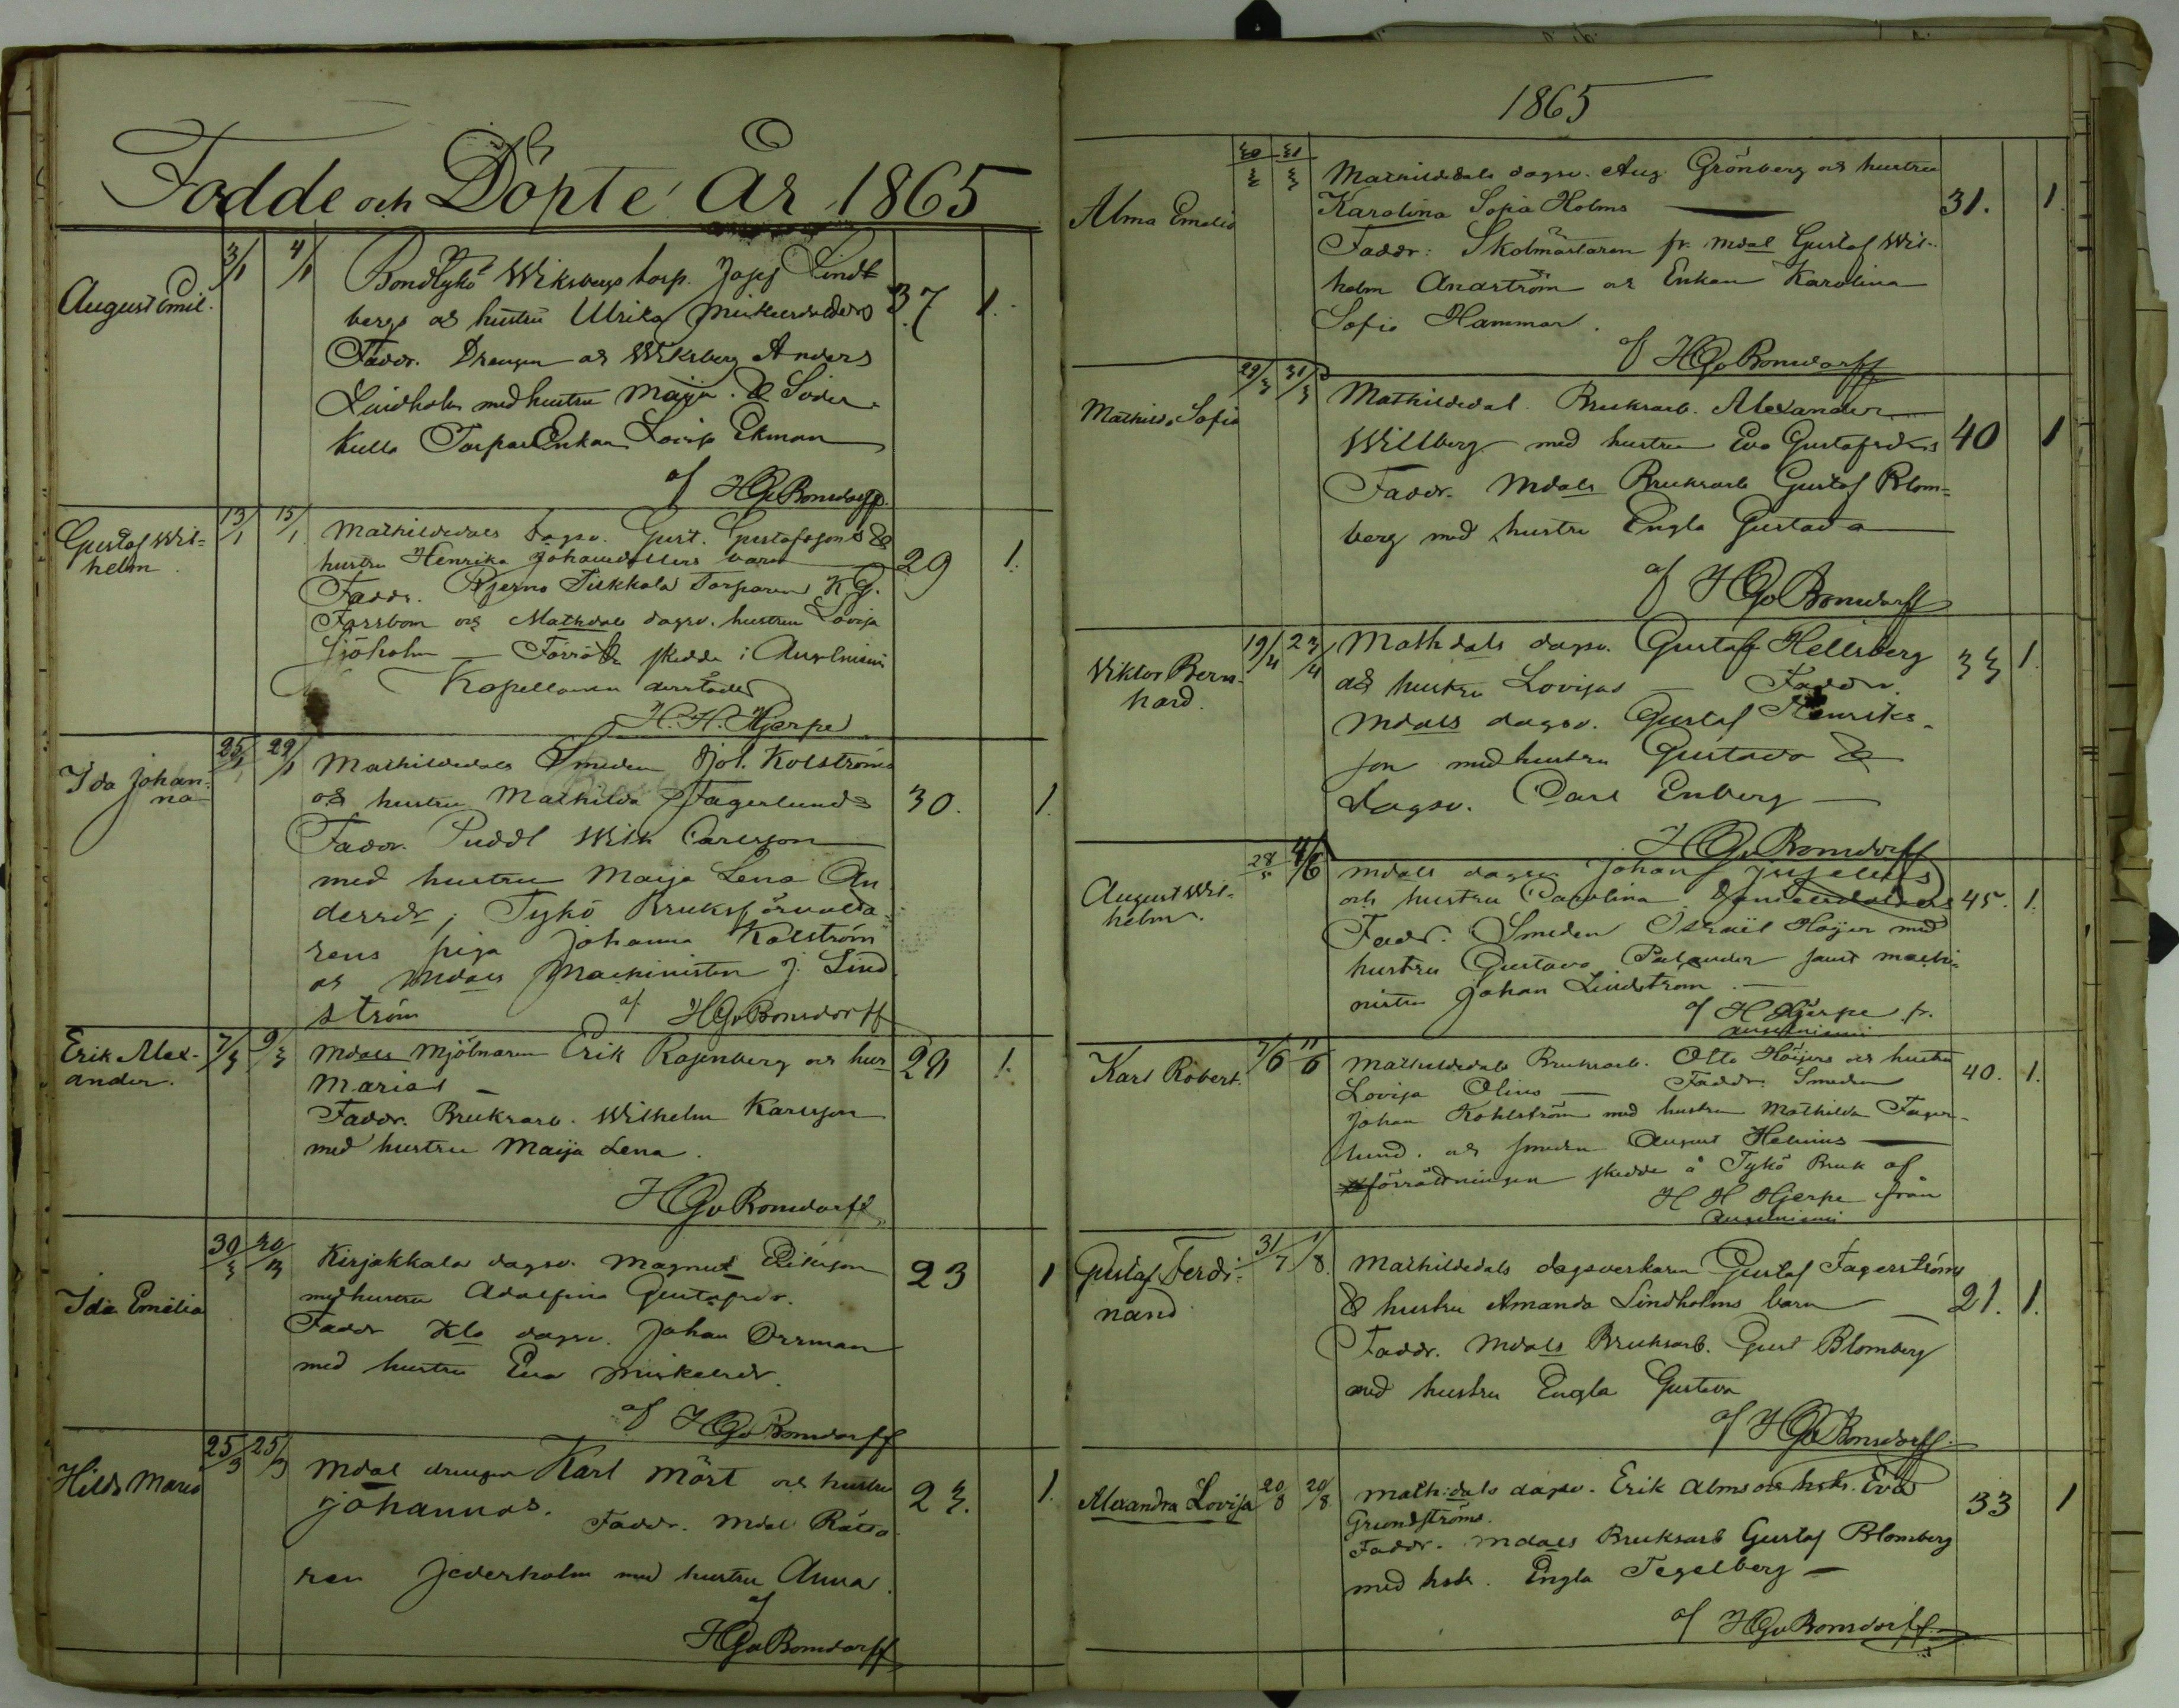 Födde och Döpte År 1865
August Emil.
3/1 4/1
Bondtykö Wiksbergs torp. Josef Lindt
bergs och hustru Ulrika Mickelsdotters 37 1.
Faddr. Drengen och Wiksberg Anders
Lindholm med hustru Maija. & Söder-
kulla Torpar Enkan Lovisa Ekman
af HGvBonsdorff.
Gustaf Wil=
helm.
13/1 15/1
Mathildedals dagsv. Gust. Gustafssons &
hustru Henrika Johansdotters barn 29 1.
Faddr. Bjerno Tiskkala Torparen K G.
Forssbom och Mathdals dagsv. hustrun Lovisa
Sjöholm — Förrättn skedde i Angelniemi
Kapellanen derstädes
H. H. Hjerpe
Ida Johan-
na
25/1 29/1
Mathildedals Smeden Joh. Kolströms
och hustru Mathilda Fagerlunds 30. 1.
Faddr. Puddl Wilh Carlsson
med hustru Maija Lena An
dersdr, Tykö Bruksförvalta-
rens piga Johanna Kolström
och Mdals Machinisten J. Lind
ström af HGvBonsdorff
Erik Alex-
ander.
7/3 9/3
Mdals Mjölnaren Erik Rosenberg och hus 28 1.
Marias —
Faddr. Bruksarb. Wilhelm Karlsson
med hustru Maija Lena.
HGvBonsdorff
Ida Emelia
30/3
Kirjakkala dagsv. Magnus Eriksson 23 1
med hustru Adolfina Gustafsdr.
Faddr Kla dagsv. Johan Örrman
med hustru Eva Mickelsdr.
af HGvBonsdorff
Hilda Maria
25/3 25/3
Mdal drengen Karl Mört och hustru 23. 1.
Johannas. Faddr. Mdal Rätta
ren Jederholm med hustru Anna.
af
HGvBonsdorff
1865
Alma Emelia
30/3 31/3
Mathildedals dagsv. Aug. Grönberg och hustru 31. 1.
Karolina Sofia Holms —
Faddr: Skolmästaren fr. Mdal Gustaf Wil-
helm Anaström och Enkan Karolina
Sofia Hammar.
af HGvBonsdorff
Mathilda Sofia
29/3 31/3
Mathildedal. Bruksarb. Alexander
Willberg med hustru Eva Gustafsdrs 40 1
Faddr. Mdals Bruksarb Gustaf Blom=
berg med hustru Engla Gustava
af HGvBonsdorff
Viktor Bern-
hard.
19/4 23/4
Mathdals dagsv. Gustaf Hellsberg 33 1.
och hustru Lovisas — Faddr.
Mdals dagsv. Gustaf Henriks-
son med hustru Gustava &
Dagsv. Carl Enberg —
HGvBonsdorff
August Wil-
helm.
28/5 4/6
Mdals dagsv. Johan
och hustru Carolina Danielsdotters 45. 1.
Faddr. Smeden Israel Höijer med
hustru Gustava Palander samt machi-
nisten Johan Lindström —
af H Hjerpe fr.
Angelniemi
Karl Robert.
7/6 11/6
Mathildedals Bruksarb. Otto Höijers och hustru 40. 1.
Lovisa Olins — Faddr. Smeden
Johan Kohlström med hustru Mathilda Fager-
lund. och smeden August Helenius —
förrättningen skedde å Tykö Bruk af
H H Hjerpe från
Angelniemi
Gustaf Ferdi-
nand
31/7 1/8
Mathildedals dagsverkaren Gustaf Fagerströms
& hustru Amanda Lindholms barn — 21. 1.
Faddr. Mdals Bruksarb. Gust Blomberg
med hustru Engla Gustava
af HGvBonsdorff.
Alexandra Lovisa
20/8 20/8
Math:dals dagsv. Erik Alms och hstr. Eva 33 1
Grundströms.
Faddr. Mdals Bruksarb Gustaf Blomberg
med hstr. Engla Tegelberg —
af HGvBonsdorff.